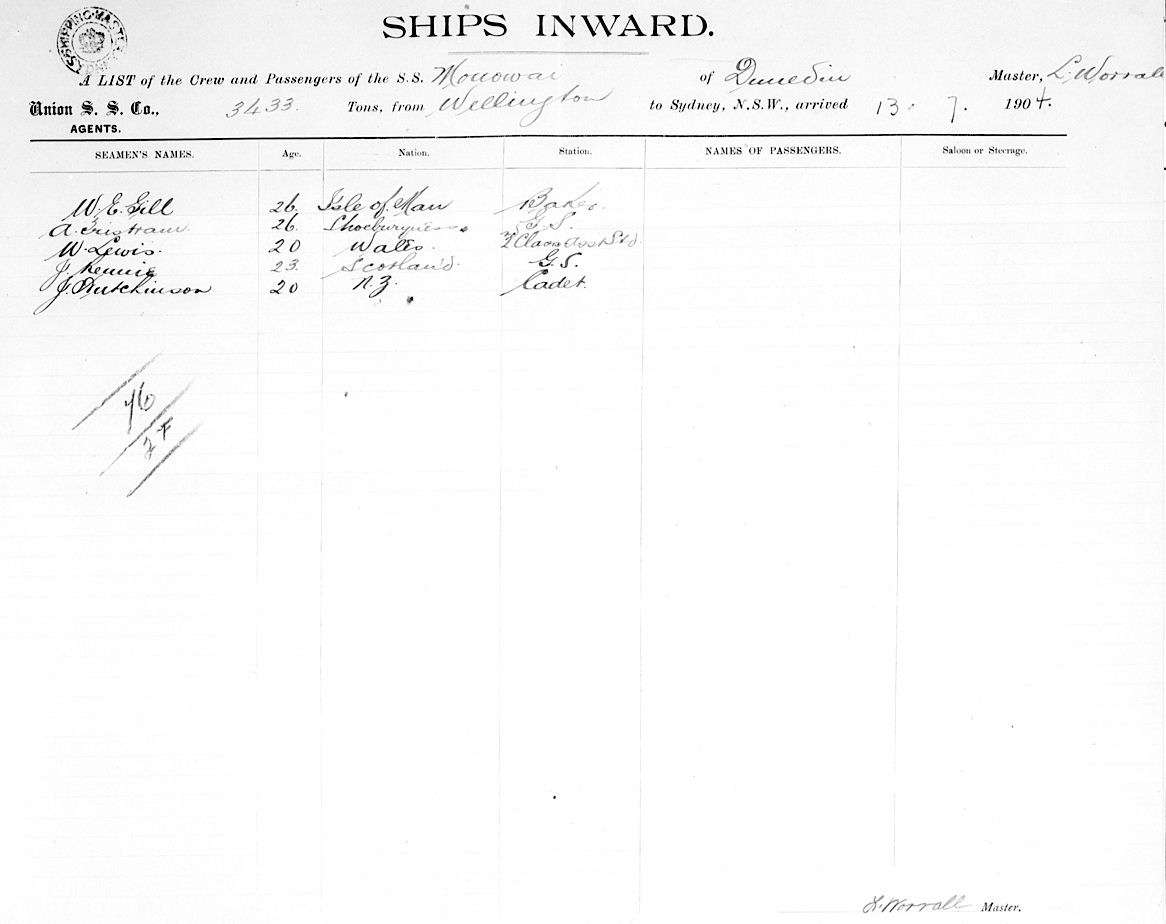 SHIPPING MASTER
SHIPS INWARD.
A LIST of the Crew and Passengers of the S.S. Monowai of Dunedin Master, L. Worrall
Union S. S. Co., 3433. Tons, from Wellington to Sydney, N.S.W., arrived 13. 7. 1904.
AGENTS.
SEAMEN'S NAMES. Age. Nation. Station. NAMES OF PASSENGERS. Saloon or Steerage.
W. E. Gill 26. Isle of Man Baker.
A. Tristram. 26. Shoeburyness. G. S.
W. Lewis. 20 Wales. 2 Class Asst Std.
J. Rennie 23. Scotland. G. S.
J. Hutchinson 20 N.Z. Cadet.
76
2 F
L. Worrall Master.